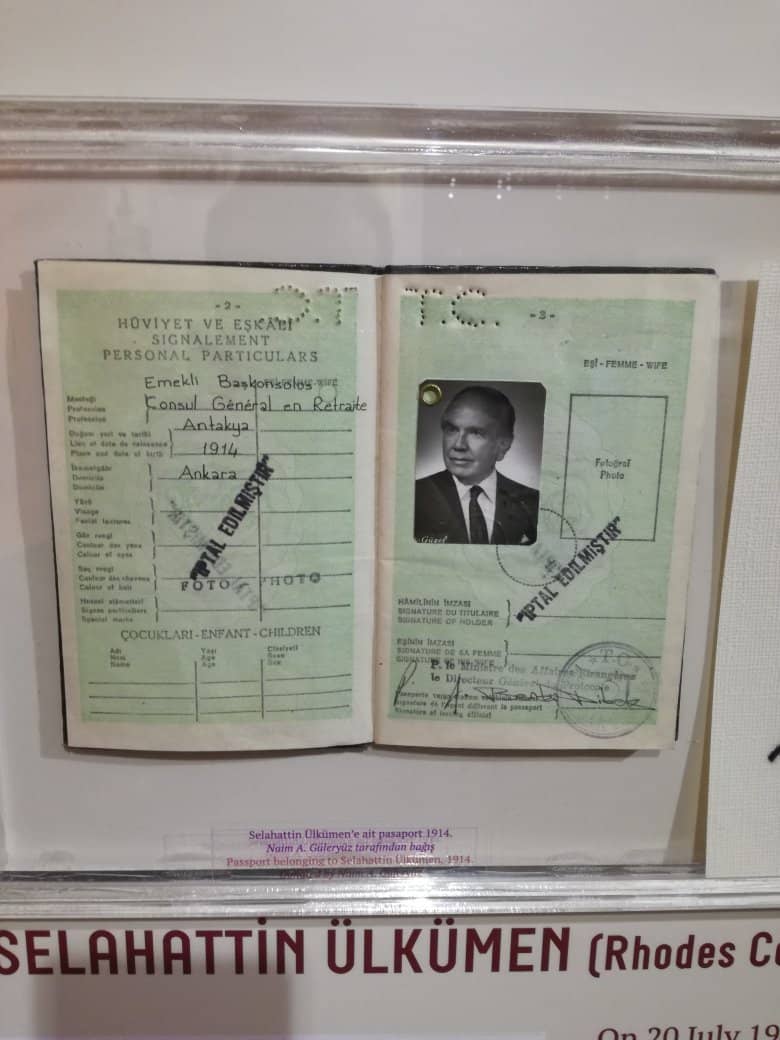 -2-
T.C.
HÜVİYET VE EŞKÂLİ
SIGNALEMENT
PERSONAL PARTICULARS
Emekli Başkonsolos
WIFE
Mesleği
Profession
Profession
Consul Général en Retraite
Doğum yeri ve tarihi
Lieu et date de naissance
Place and date of birth
Antakya
1914
İkametgâhı
Domicile
Domicile
Ankara
Yüzü
Visage
Facial features
Göz rengi
Couleur des yeux
Colour of eyes
Saç rengi
Couleur des cheveux
Colour of hair
FOTO PHOTO
Hususi alâmetleri
Signes particuliers
Special marks
"İPTAL EDİLMİŞTİR"
ÇOCUKLARI - ENFANT - CHILDREN
Adı
Nom
Name
Yaşı
Age
Age
Cinsiyeti
Sexe
Sex
T.C.
-3-
EŞİ - FEMME - WIFE
Fotoğraf
Photo
Güzel
"İPTAL EDİLMİŞTİR"
HÂMİLİNİN İMZASI
SIGNATURE DU TITULAIRE
SIGNATURE OF HOLDER
EŞİNİN İMZASI
SIGNATURE DE SA FEMME
SIGNATURE OF WIFE
P. le Ministre des Affaires Etrangères
le Directeur Général du Protocole
signature de l'agent délivrant le passeport
Signature of issuing official
T.C.
Selahattin Ülkümen'e ait pasaport 1914.
Naim A. Güleryüz tarafından bağış
Passport belonging to Selahattin Ülkümen, 1914.
Donated by Naim A. Güleryüz
SELAHATTİN ÜLKÜMEN (Rhodes Co
On 20 July 19